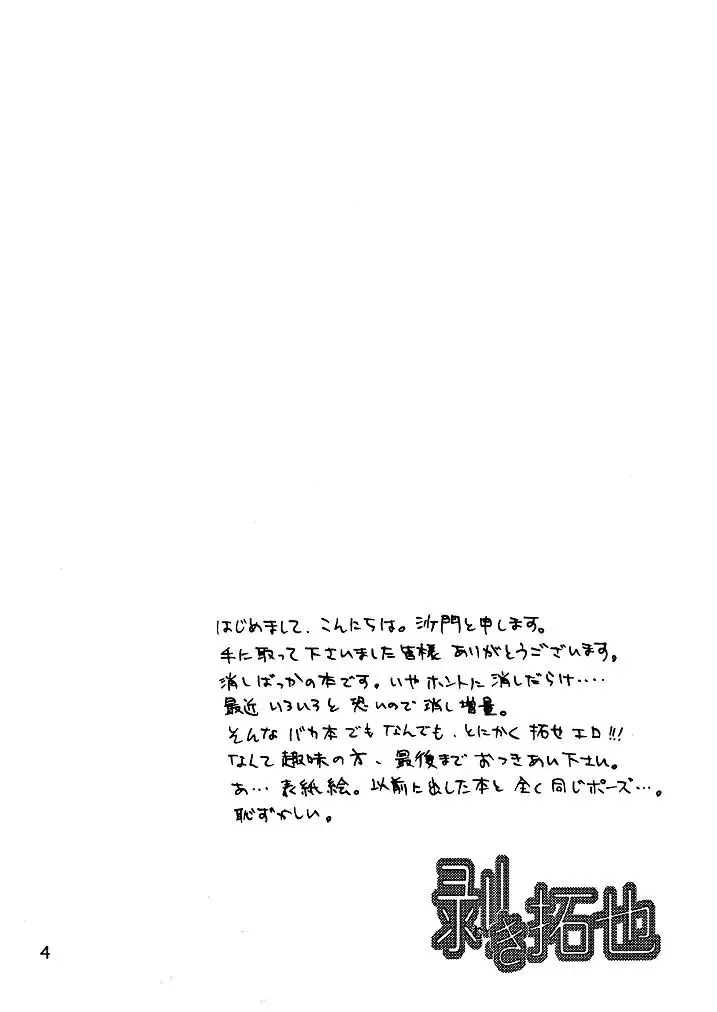 はじめまして、こんにちは。沙門と申します。
手に取って下さいました皆様 ありがとうございます。
消しばっかの本です。いや ホントに 消しだらけ・・・・
最近 いろいろと 恐いので 消し増量。
そんな バカ本でも なんでも、とにかく 拓也 エロ!!!
なんて 趣味の方、最後まで おつきあい下さい。
あ… 表紙絵。以前に出した本と 全く 同じポーズ…。
恥ずかしい。
剥き拓也
4